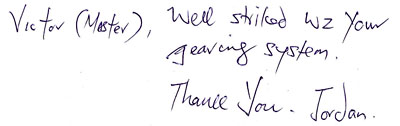 Victor (Master), Well striked wz your
gearing system.
Thank You. Jordan.